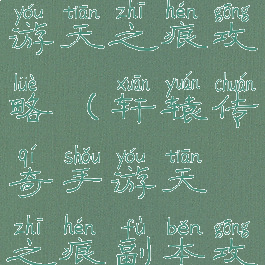 yóu tiān zhī hén gōng
游天之痕攻
lüè xuān yuán chuán
略（轩辕传
qí shǒu yóu tiān
奇手游天
zhī hén fù běn gōng
之痕副本攻